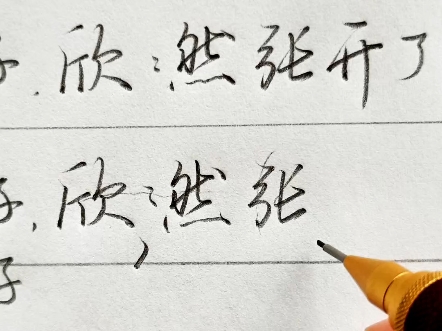 子,欣然张开了
子,欣然张
子